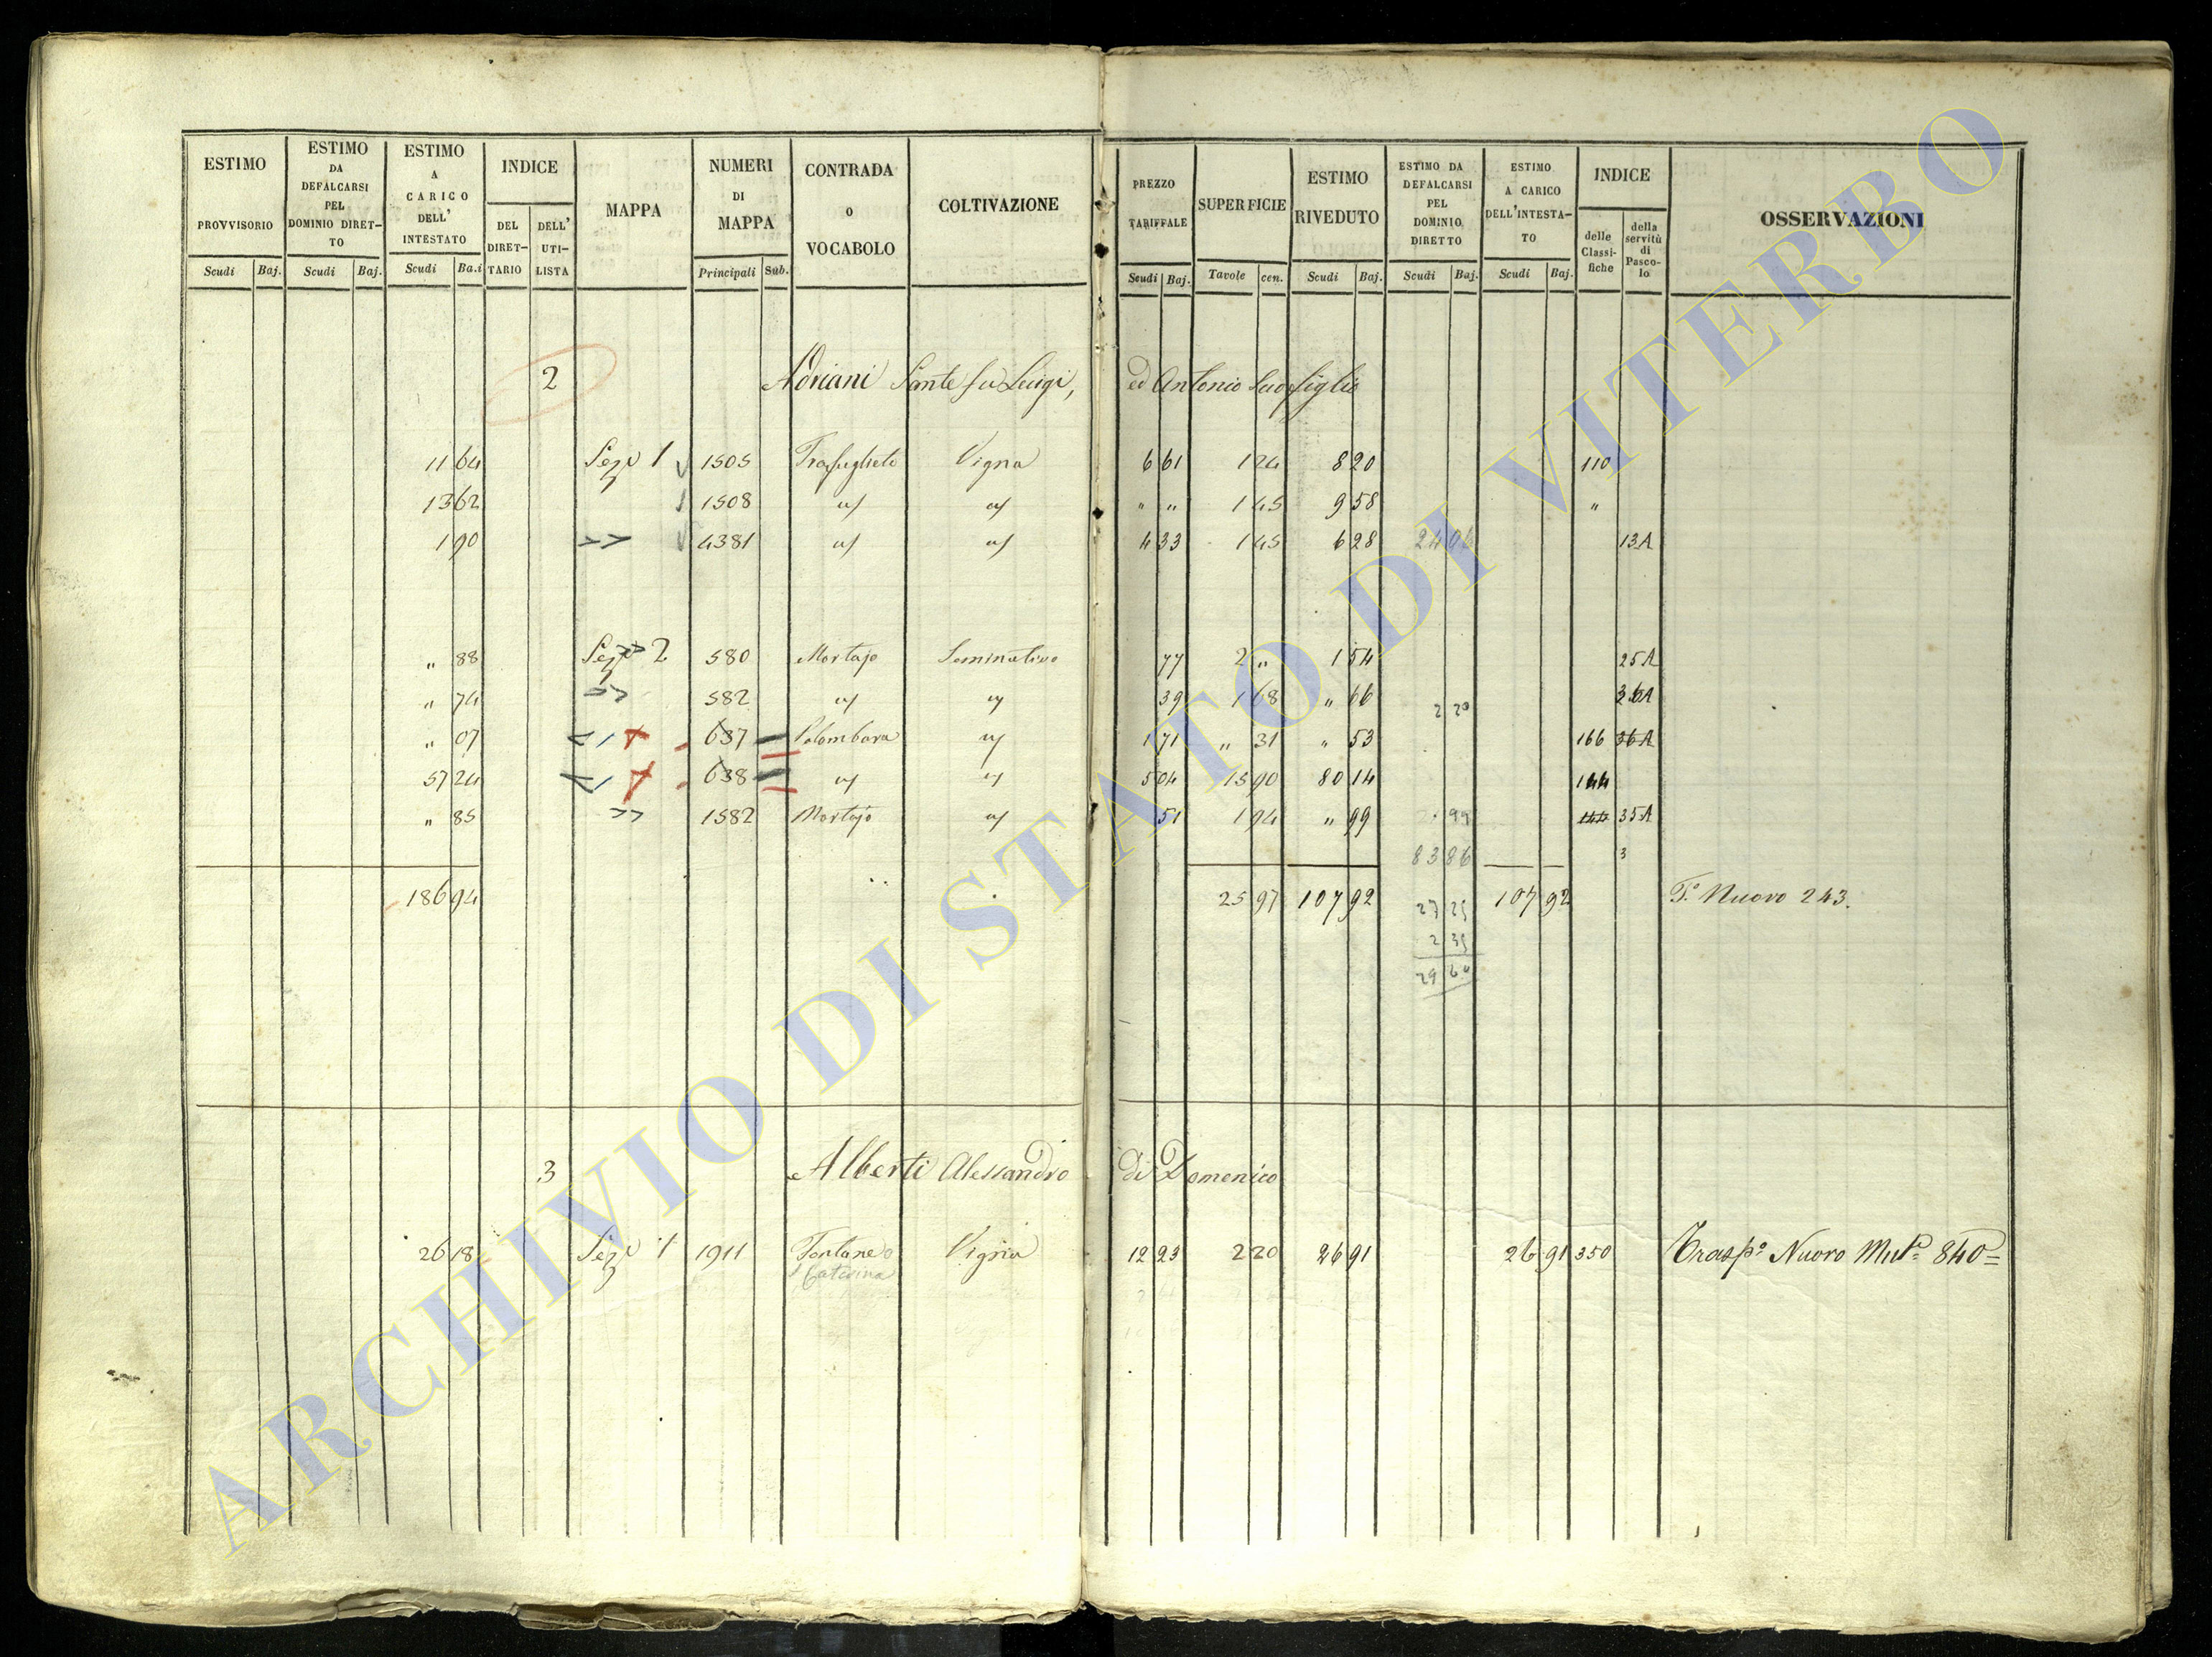 ESTIMO PROVVISORIO Scudi Baj.
ESTIMO DA DEFALCARSI PEL DOMINIO DIRET-TO Scudi Baj.
ESTIMO A CARICO DELL' INTESTATO Scudi Ba.i
INDICE DEL DIRET-TARIO DELL' UTI-LISTA
MAPPA
NUMERI DI MAPPA Principali Sub.
CONTRADA o VOCABOLO
COLTIVAZIONE
PREZZO TARIFFALE Scudi Baj.
SUPERFICIE Tavole cen.
ESTIMO RIVEDUTO Scudi Baj.
ESTIMO DA DEFALCARSI PEL DOMINIO DIRETTO Scudi Baj.
ESTIMO A CARICO DELL'INTESTA-TO Scudi Baj.
INDICE delle Classi-fiche della servitù di Pasco-lo
OSSERVAZIONI
2 Adriani Sante fu Luigi, ed Antonio suo figlio
11 64 Seze 1 1505 Vigna 6 61 1 24 8 20 110
13 62 1508 1 45 9 58 "
1 90 4381 4 33 1 45 6 28 24 0 13A
" 88 Seze 2 580 Mortajo Seminativo 77 2 " 1 54 25A
" 74 582 39 1 68 " 66 2 20 36A
" 07 637 Palombara 1 71 " 31 " 53 166 36A
57 24 638 5 04 15 90 80 14 144
" 85 1582 Mortajo 51 1 94 " 99 99 35A
83 86 3
186 94 25 97 107 92 107 92 T.º Nuovo 243.
27 25
2 35
29 60
3 Alberti Alessandro di Domenico
26 18 Seze 1 1911 Fontane Vigna 12 23 2 20 26 91 26 91 350 Trasp.º Nuovo Mut.ª 840=
S Caterina
ARCHIVIO DI STATO DI VITERBO